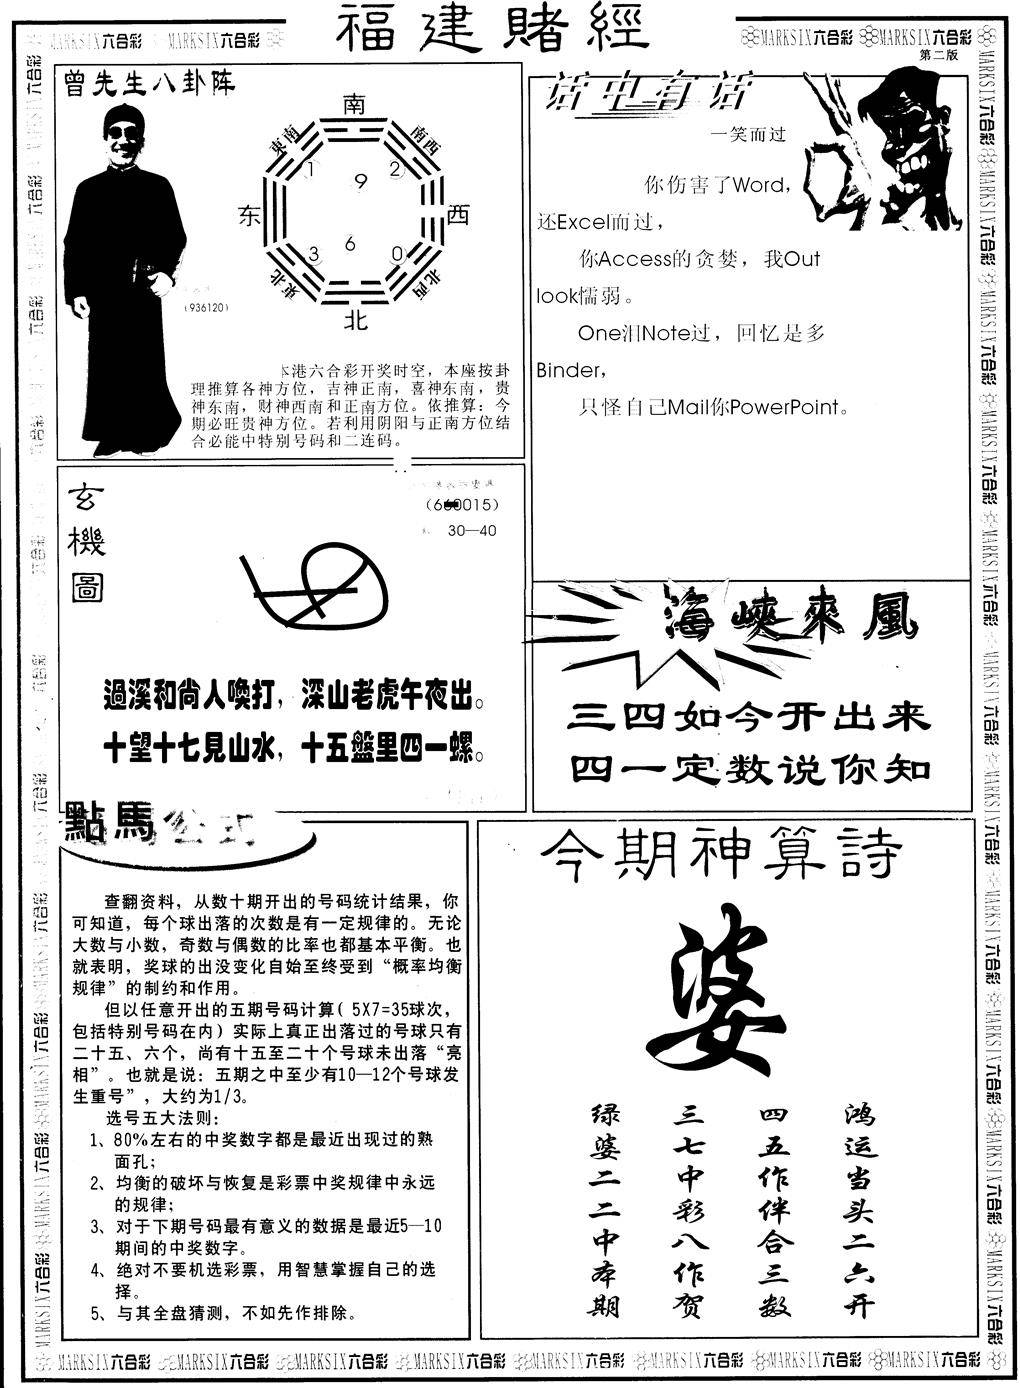 福建賭經
MARKSIX六合彩 MARKSIX六合彩
MARKSIX六合彩 MARKSIX六合彩
第二版
曾先生八卦阵
南
東南
南西
1
9
2
东
西
3
6
0
東北
北西
北
(936120)
本港六合彩开奖时空，本座按卦
理推算各神方位，吉神正南，喜神东南，贵
神东南，财神西南和正南方位。依推算：今
期必旺贵神方位。若利用阴阳与正南方位结
合必能中特别号码和二连码。
话中有话
一笑而过
你伤害了Word，
还Excel而过，
你Access的贪婪，我Out
look懦弱。
One泪Note过，回忆是多
Binder，
只怪自己Mail你PowerPoint。
玄機圖
30—40
過溪和尚人喚打，深山老虎午夜出。
十望十七見山水，十五盤里四一螺。
海峽來風
三四如今开出来
四一定数说你知
點馬公式
查翻资料，从数十期开出的号码统计结果，你
可知道，每个球出落的次数是有一定规律的。无论
大数与小数，奇数与偶数的比率也都基本平衡。也
就表明，奖球的出没变化自始至终受到“概率均衡
规律”的制约和作用。
但以任意开出的五期号码计算( 5X7=35球次，
包括特别号码在内）实际上真正出落过的号球只有
二十五、六个，尚有十五至二十个号球未出落“亮
相”。也就是说：五期之中至少有10—12个号球发
生重号”，大约为1/3。
选号五大法则：
1、80%左右的中奖数字都是最近出现过的熟
面孔；
2、均衡的破坏与恢复是彩票中奖规律中永远
的规律；
3、对于下期号码最有意义的数据是最近5—10
期间的中奖数字。
4、绝对不要机选彩票，用智慧掌握自己的选
择。
5、与其全盘猜测，不如先作排除。
今期神算詩
婆
鸿运当头二六开
四五作伴合三数
三七中彩八作贺
绿婆二二中本期
MARKSIX六合彩 MARKSIX六合彩 MARKSIX六合彩 MARKSIX六合彩 MARKSIX六合彩 MARKSIX六合彩 MARKSIX六合彩 MARKSIX六合彩